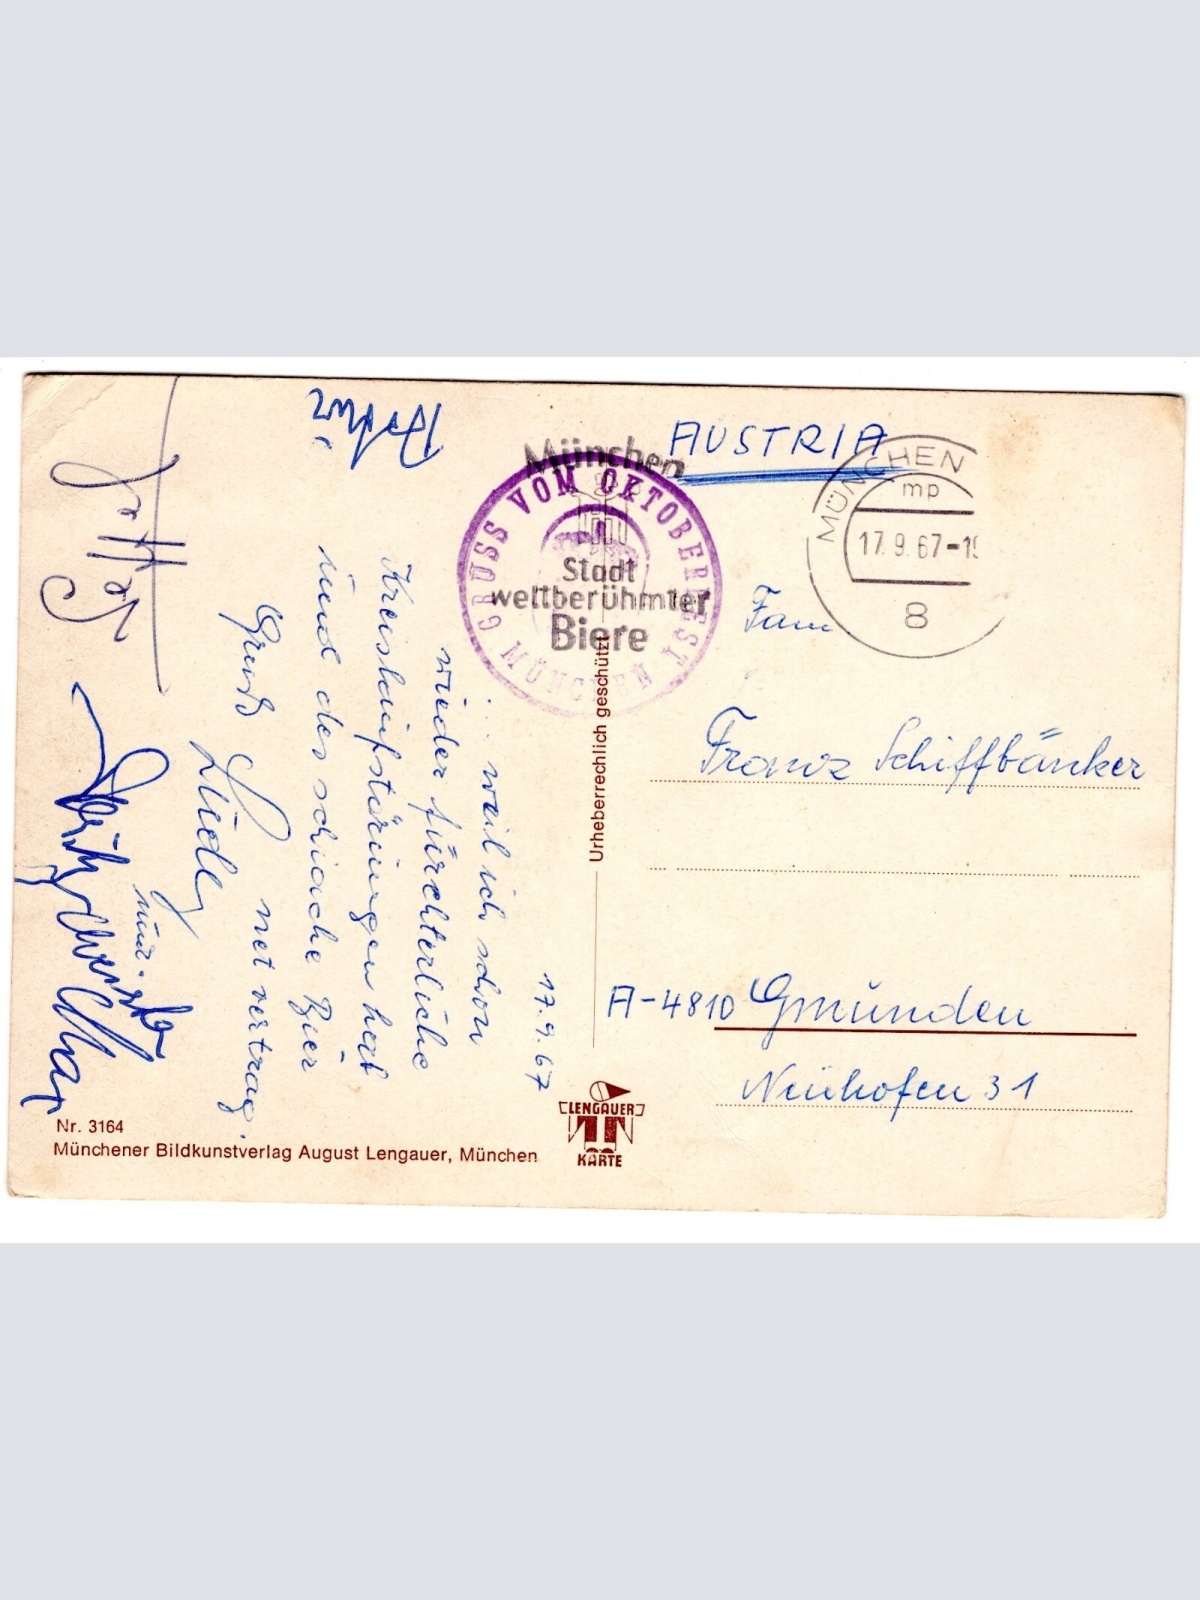 17.9.67
... weil ich schon
wieder fürchterliche
Kreislaufstörungen hab
und des schiache Bier
net vertrag.
Gruß
und
AUSTRIA
Fam
Franz Schiffbänker
A-4810 Gmunden
Neuhofen 31
MÜNCHEN
mp
17.9.67-19
8
München
Stadt
weltberühmter
Biere
GRUSS VOM OKTOBERFEST
MÜNCHEN
Urheberrechlich geschützt
Nr. 3164
Münchener Bildkunstverlag August Lengauer, München
LENGAUER
KARTE